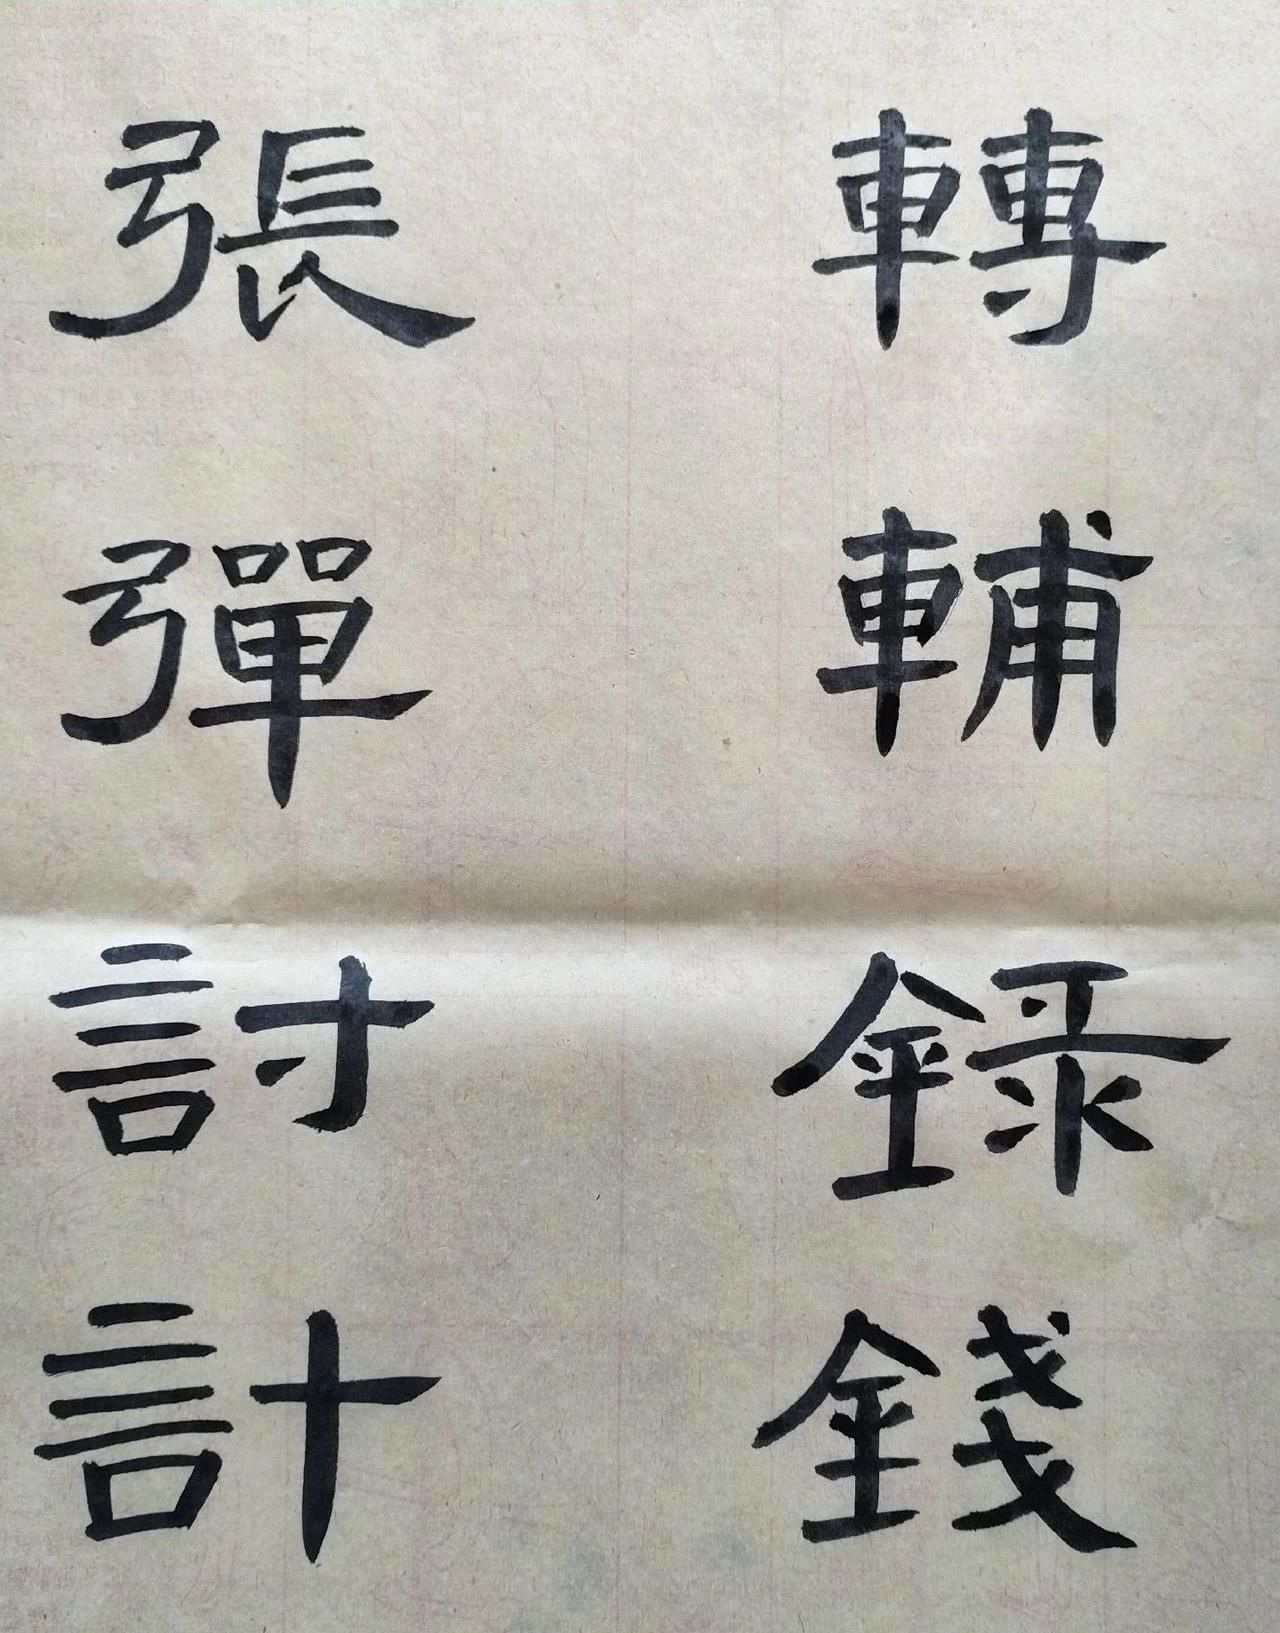 轉輔錄錢
張彈討計